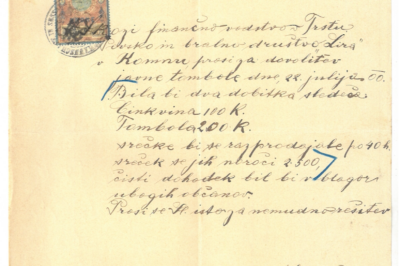 finančno vodstvo v Trstu
Pevsko in bralno društvo Lira
v Komnu prosi za dovolitev
javne tombole dne 22. julija 00.
Bila bi dva dobitka sledeča
Činkvina 100 K.
Tombola 200 K.
srečke bi se razprodajale po 40 h.
srečk se jih naroči 2500,
čisti dohodek bil bi v blagor
ubogih občanov.
Prosi se za nemudno rešitev